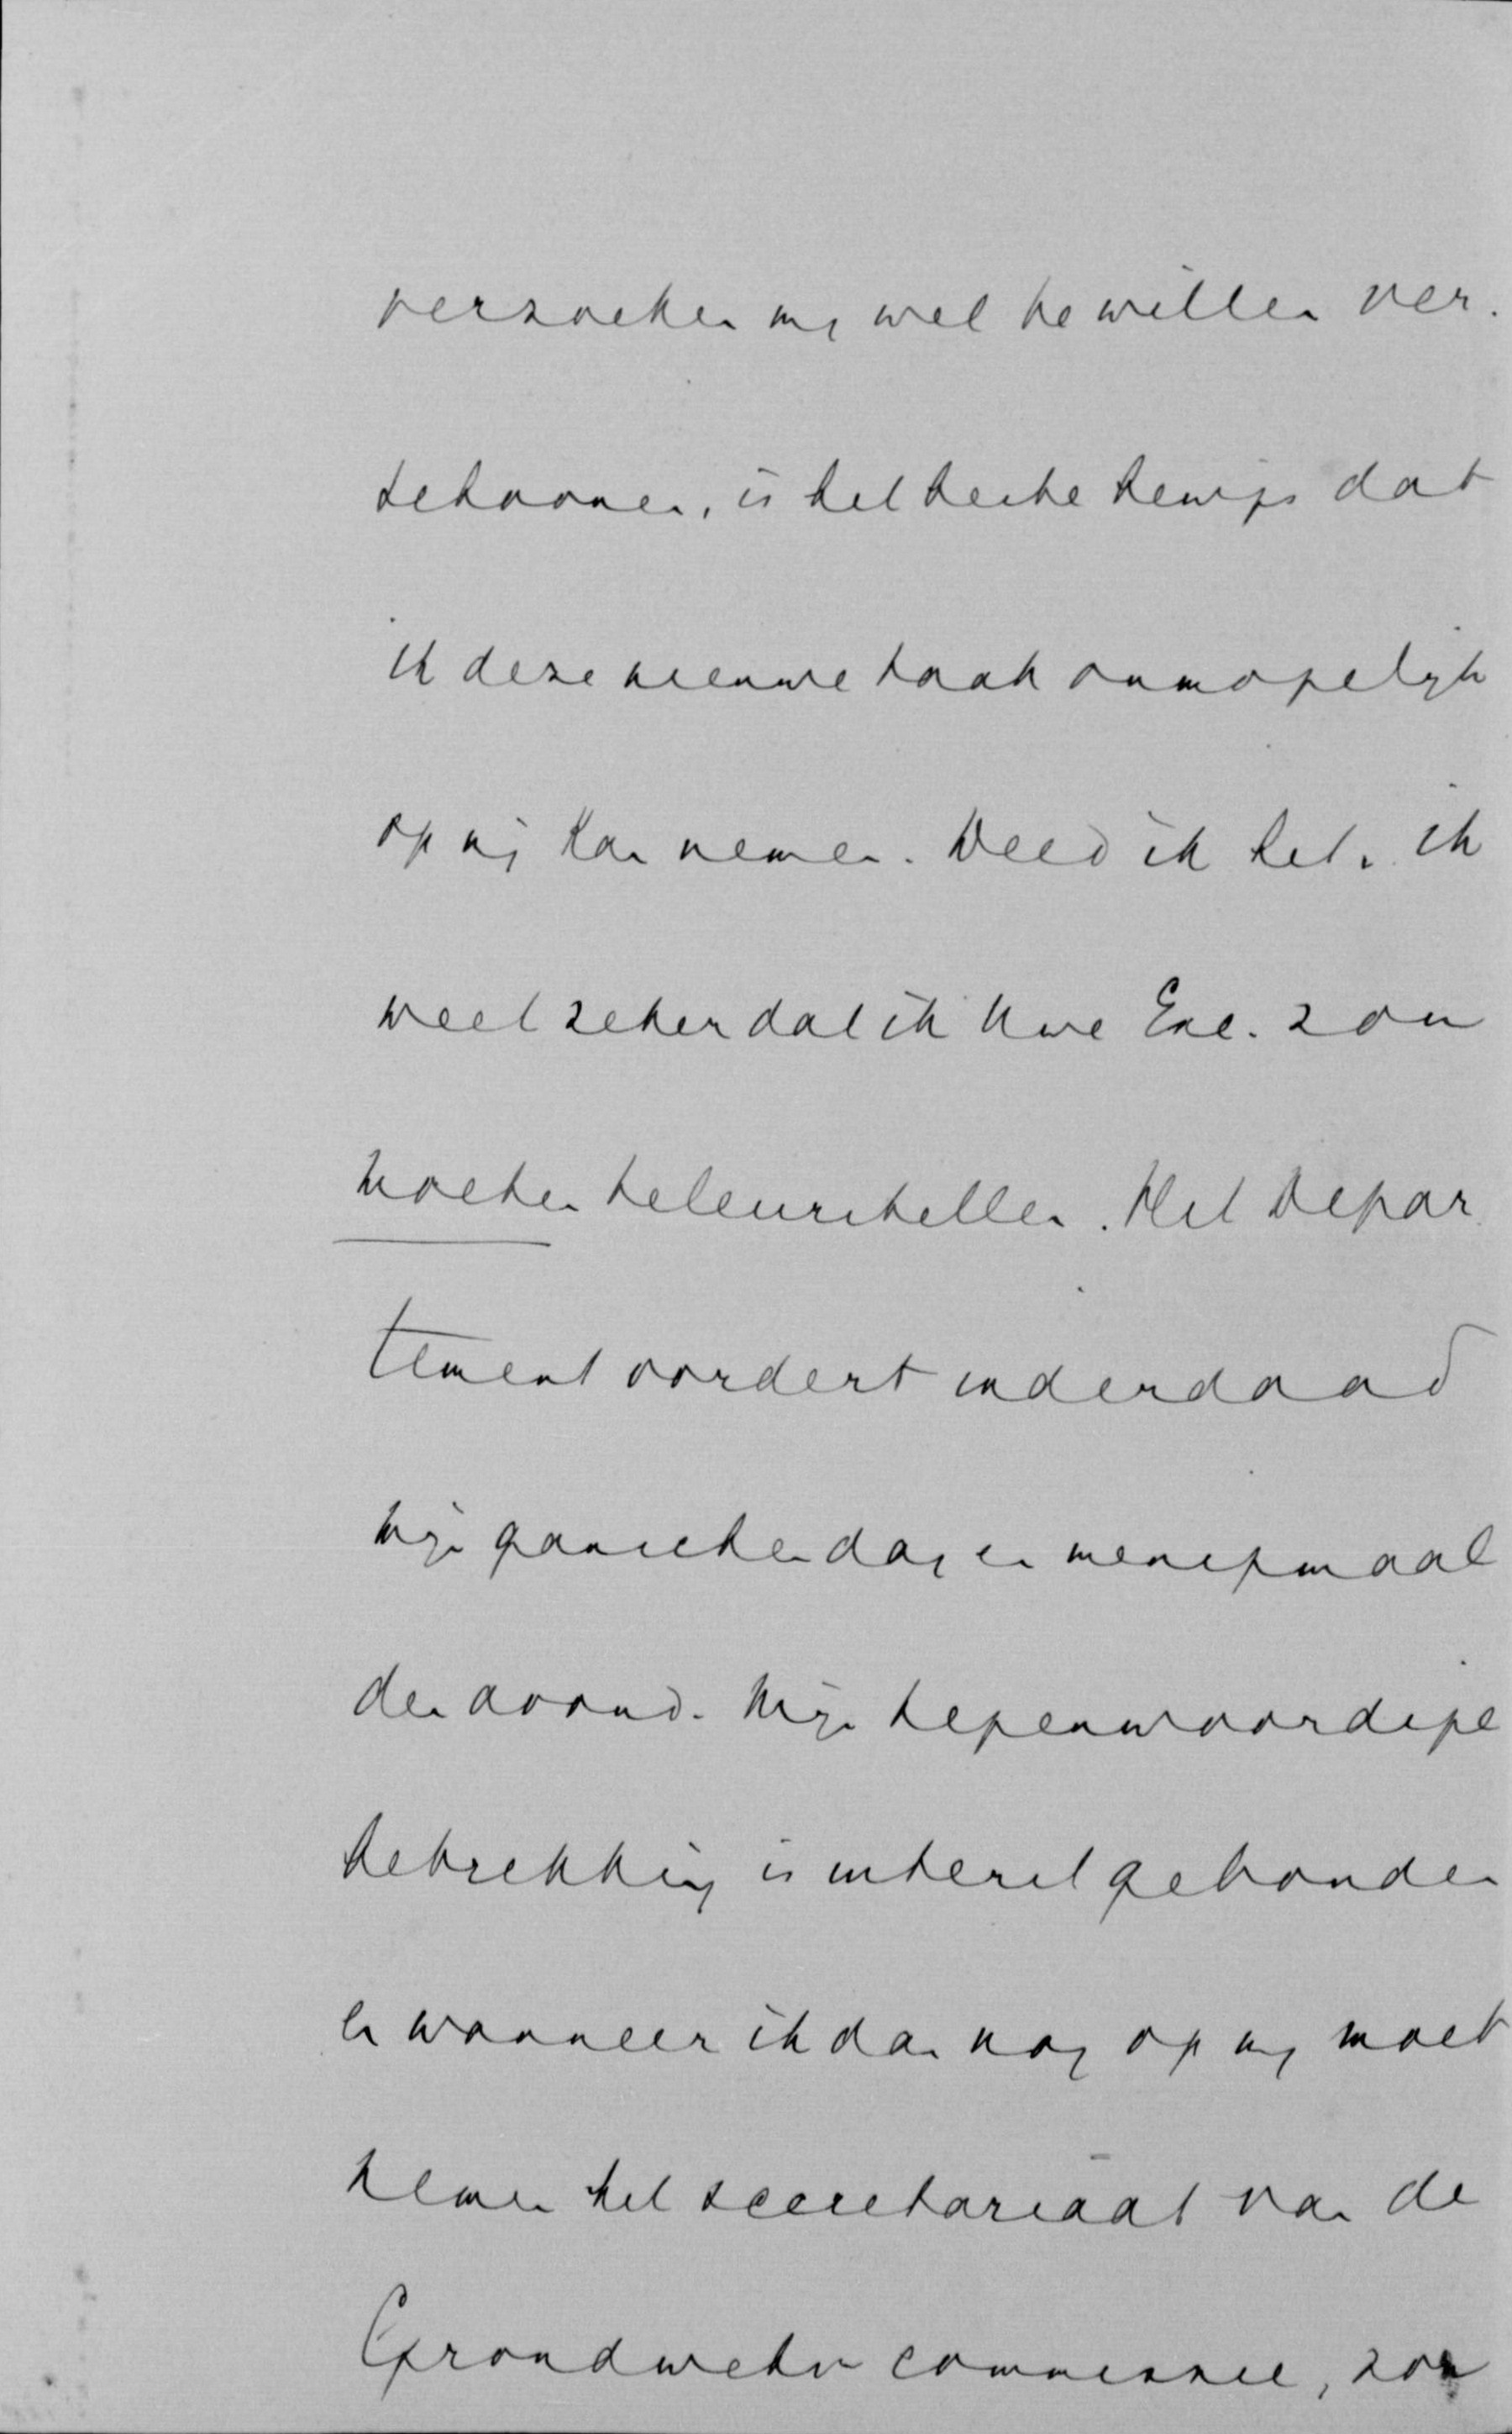 verzoeken mij wel te willen ver-
schoonen, is het beste bewijs dat
ik deze nieuwe taak onmogelijk
op mij kan nemen. Deed ik het, ik
weet zeker dat ik Uwe Exc. zou
moeten teleurstellen. Het Depar
tement vordert inderdaad
mijn ganschen dag en menigmaal
den avond. Mijn tegenwoordige
betrekking is intensief gebonden
en wanneer ik dan nog op mij moet
nemen het secretariaat van de
Grondwets commissie, zou